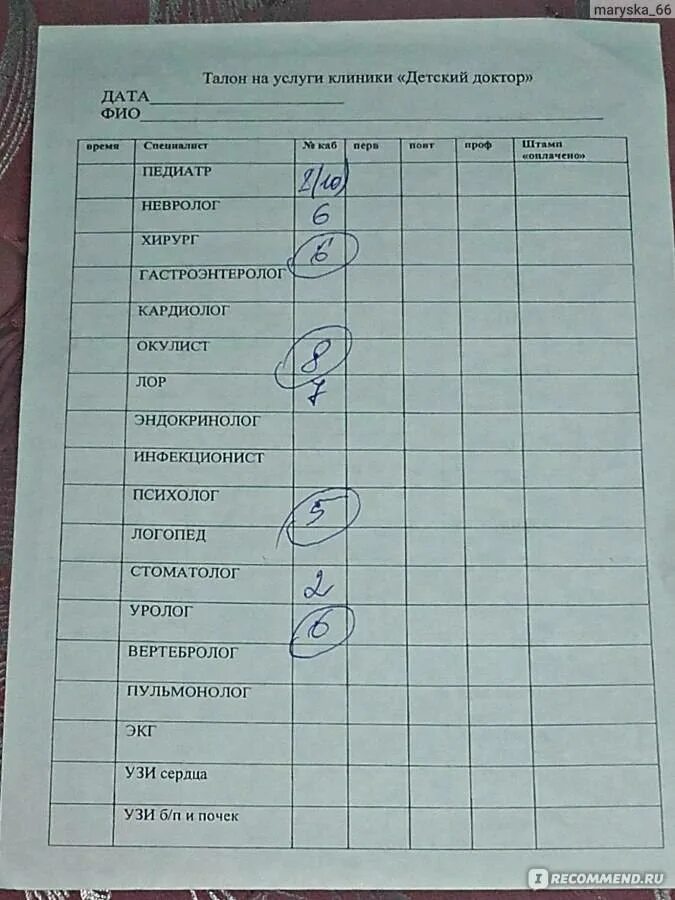 maryska_66
Талон на услуги клиники «Детский доктор»
ДАТА
ФИО
время Специалист № каб перв повт проф Штамп «оплачено»
ПЕДИАТР (10)
НЕВРОЛОГ 6
ХИРУРГ 6
ГАСТРОЭНТЕРОЛОГ
КАРДИОЛОГ
ОКУЛИСТ 8
ЛОР 7
ЭНДОКРИНОЛОГ
ИНФЕКЦИОНИСТ
ПСИХОЛОГ 5
ЛОГОПЕД
СТОМАТОЛОГ 2
УРОЛОГ 6
ВЕРТЕБРОЛОГ
ПУЛЬМОНОЛОГ
ЭКГ
УЗИ сердца
УЗИ б/п и почек
I RECOMMEND.RU